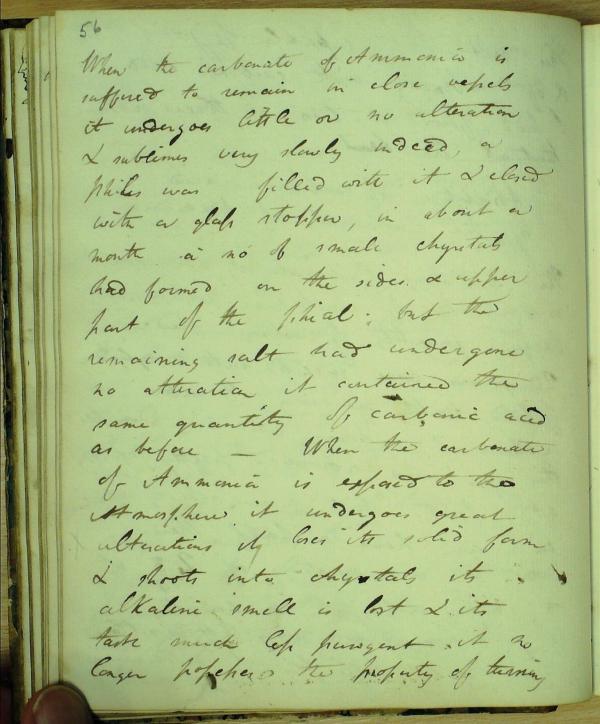 56
When the carbonate of Ammonia is
suffered to remain in close vessels
it undergoes little or no alteration
& sublimes very slowly indeed, a
was filled with it & closed
with a glass stopper, in about a
month a no of small chrystals
had formed on the sides & upper
part of the phial; but the
remaining salt had undergone
no alteration it contained the
same quantity of carbonic acid
as before — When the carbonate
of Ammonia is exposed to the
Atmosphere it undergoes great
alterations its loses its solid form
& shoots into chrystals its
alkaline smell is lost & its
taste much less pungent it no
longer possesses the property of turning